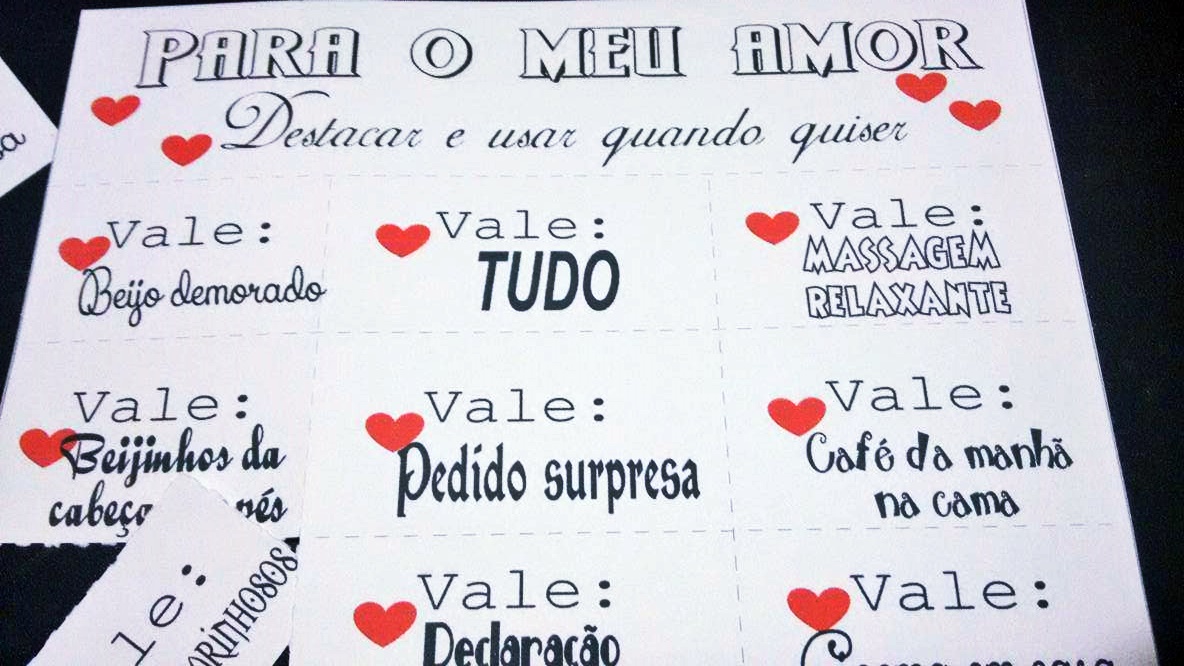 PARA O MEU AMOR
Destacar e usar quando quiser
Vale:
Beijo demorado
Vale:
TUDO
Vale:
MASSAGEM
RELAXANTE
Vale:
Beijinhos da
Vale:
Pedido surpresa
Vale:
Café da manhã
na cama
Vale:
Declaração
Vale: